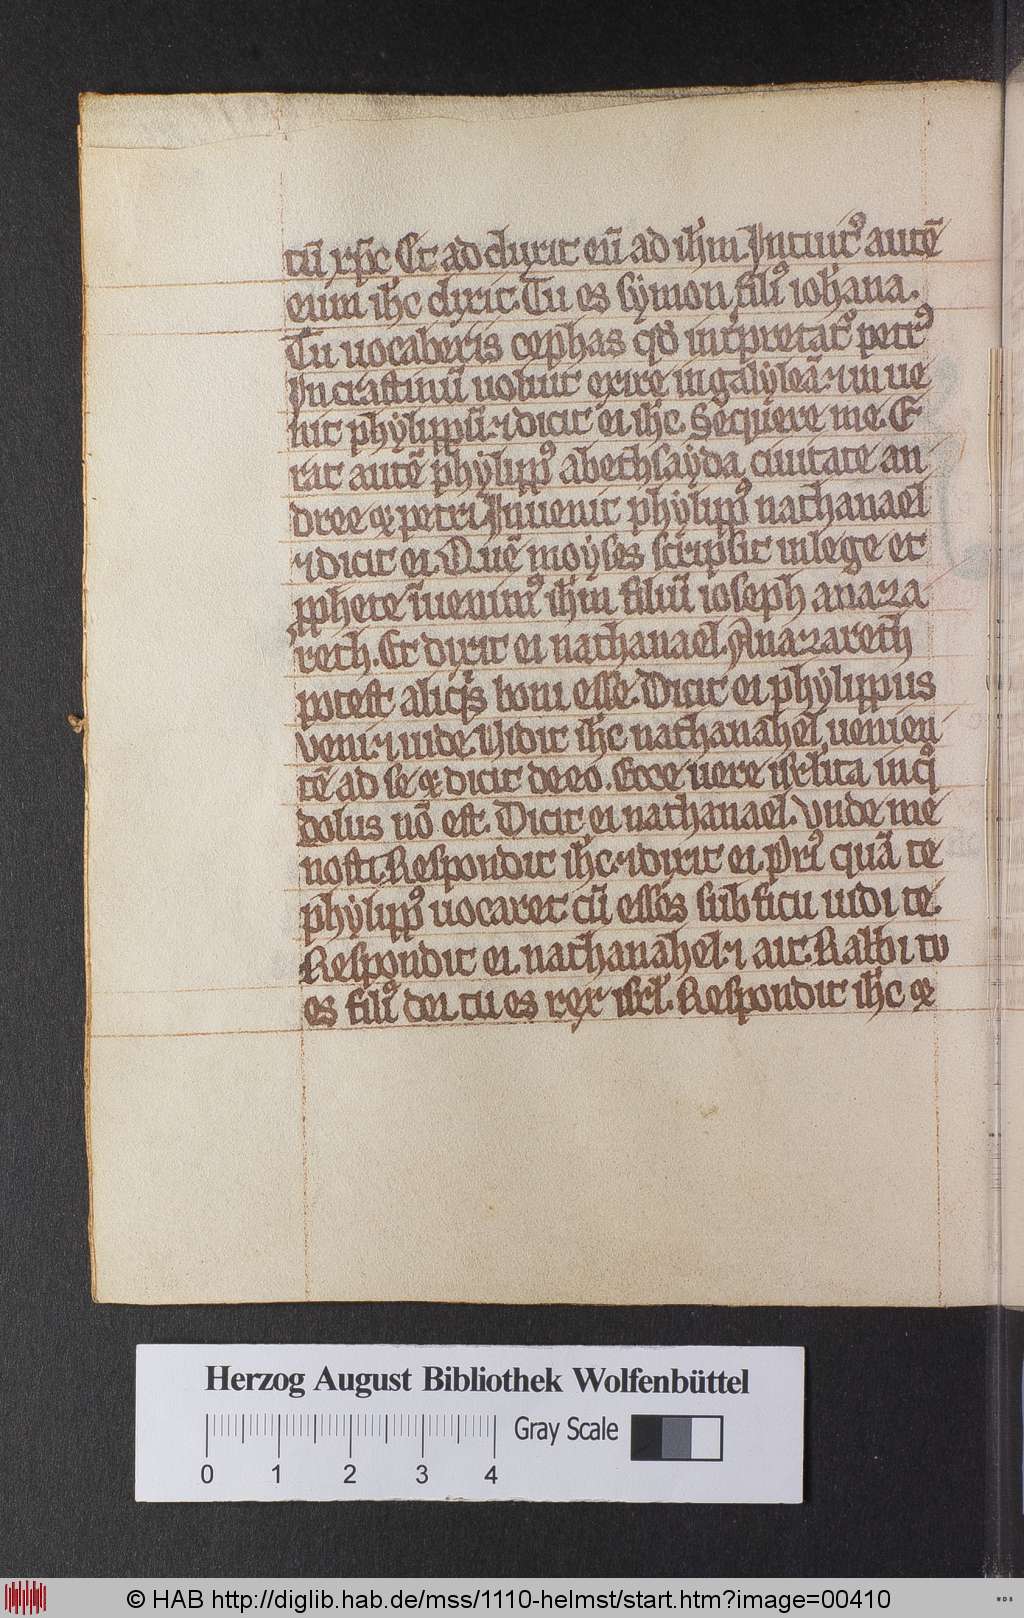 tū xp̄c Et adduxit eū ad ih̄m Intuitꝰ autē
eum ih̄c dixit. Tu es symon filiꝰ iohana.
Tu uocaberis cephas qd̄ int̄pretatꝰ petrꝰ
In crastinū uoluit exire in galyleā ⁊ inue
nit phylippū ⁊ dicit ei ih̄c. Sequere me. E
rat autē phylippꝰ abethsayda ciuitate an
dree ⁊ petri Inuenit phylippꝰ nathanael
⁊ dicit ei. Quē moyses scripsit in lege et
ꝓphete īuenimꝰ ih̄m filiū ioseph anaza
reth. Et dixit ei nathanael. A nazareth
potest aliqͥs boni esse. Dicit ei phylippus
veni ⁊ uide. Vidit ih̄c nathanahel uenien
tē ad se ⁊ dicit de eo. Ecce uere isrl̄ita in qͦ
dolus nō est. Dicit ei nathanael. Vnde me
nosti. Respondit ih̄c ⁊ dixit ei. Priꝰ quā te
phylippꝰ uocaret cū esses sub ficu uidi te.
Respondit ei nathanahel ⁊ ait. Rabbi tu
es filiꝰ dei tu es rex isrl̄. Respondit ih̄c ⁊
Herzog August Bibliothek Wolfenbüttel
Gray Scale
0 1 2 3 4
© HAB http://diglib.hab.de/mss/1110-helmst/start.htm?image=00410